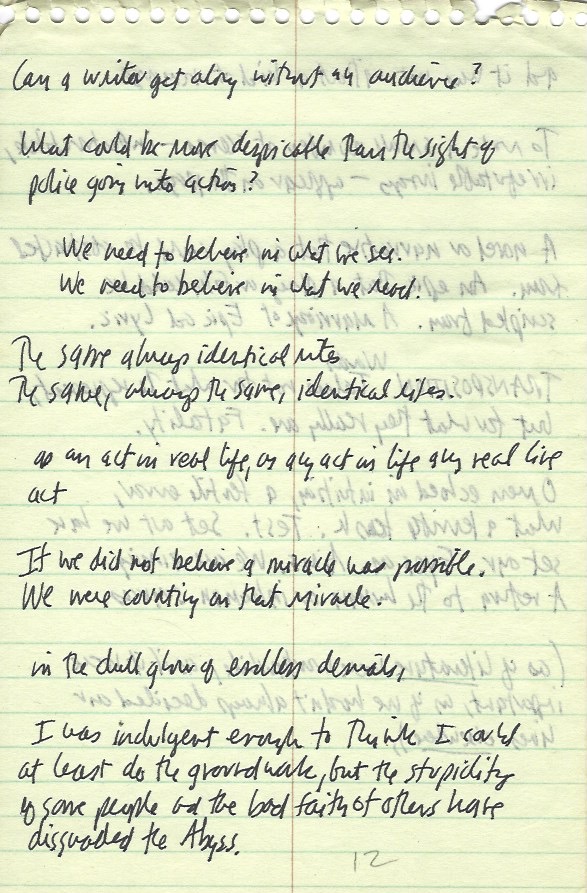 Can a writer get along without an audience?
What could be more despicable than the sight of
police going into action?
We need to believe in what we see.
We need to believe in what we need.
The same always identical rites
The same, always the same, identical lifes.
as an act in real life, as any act in life any real live
act
If we did not believe a miracle was possible.
We were counting on that miracle.
in the dull glow of endless denials,
I was indulgent enough to think I could
at least do the groundwork, but the stupidity
of some people and the bad faith of others have
disguaded the Abyss.
12